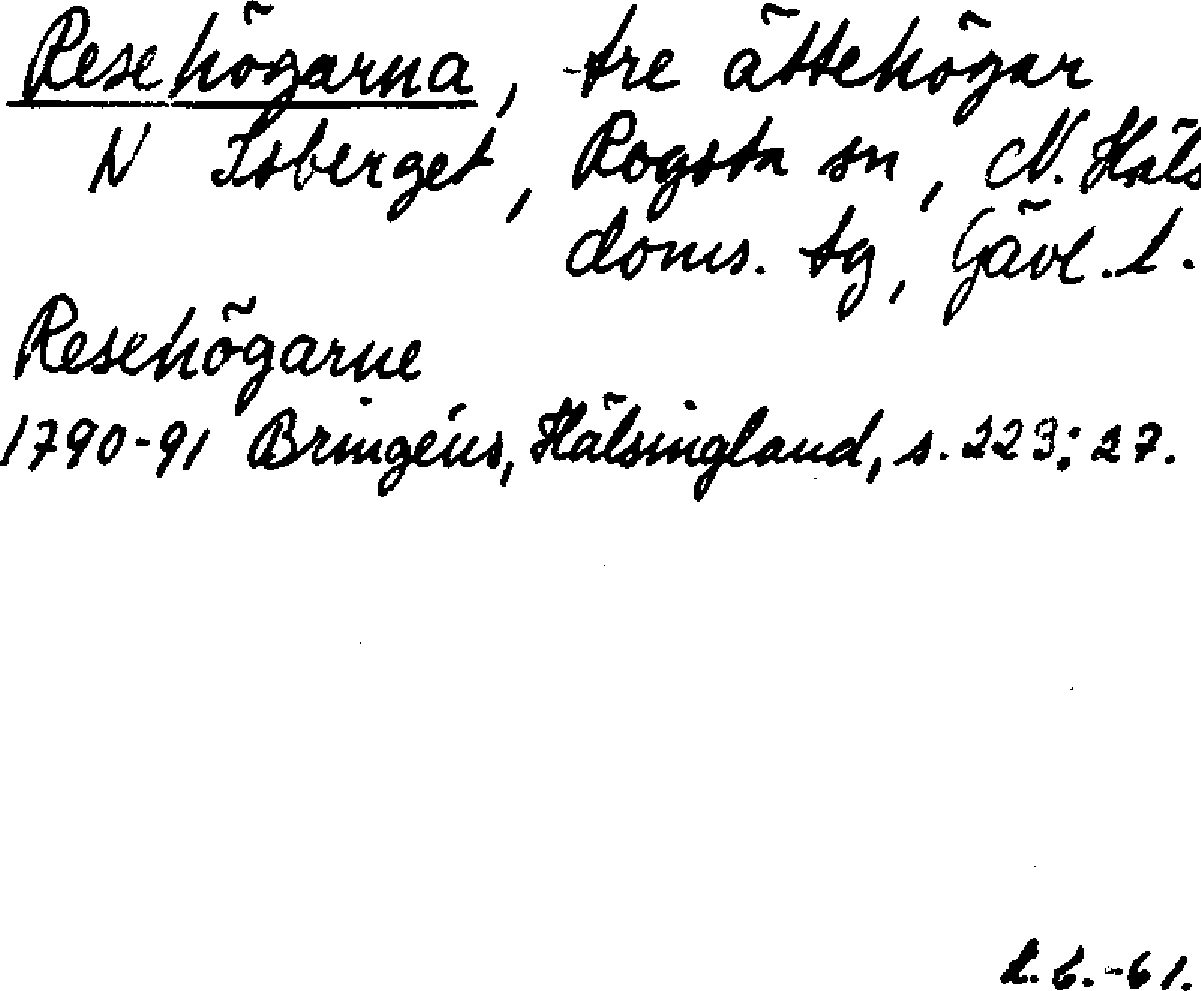 Resehögarna, tre ättehögar
N Isberget, Rogsta sn, N. Häls
doms. tg, Gävl. l.
Resehögarne
1790-91 Bringéus, Hälsingland, s. 223:27.
L.C.-61.